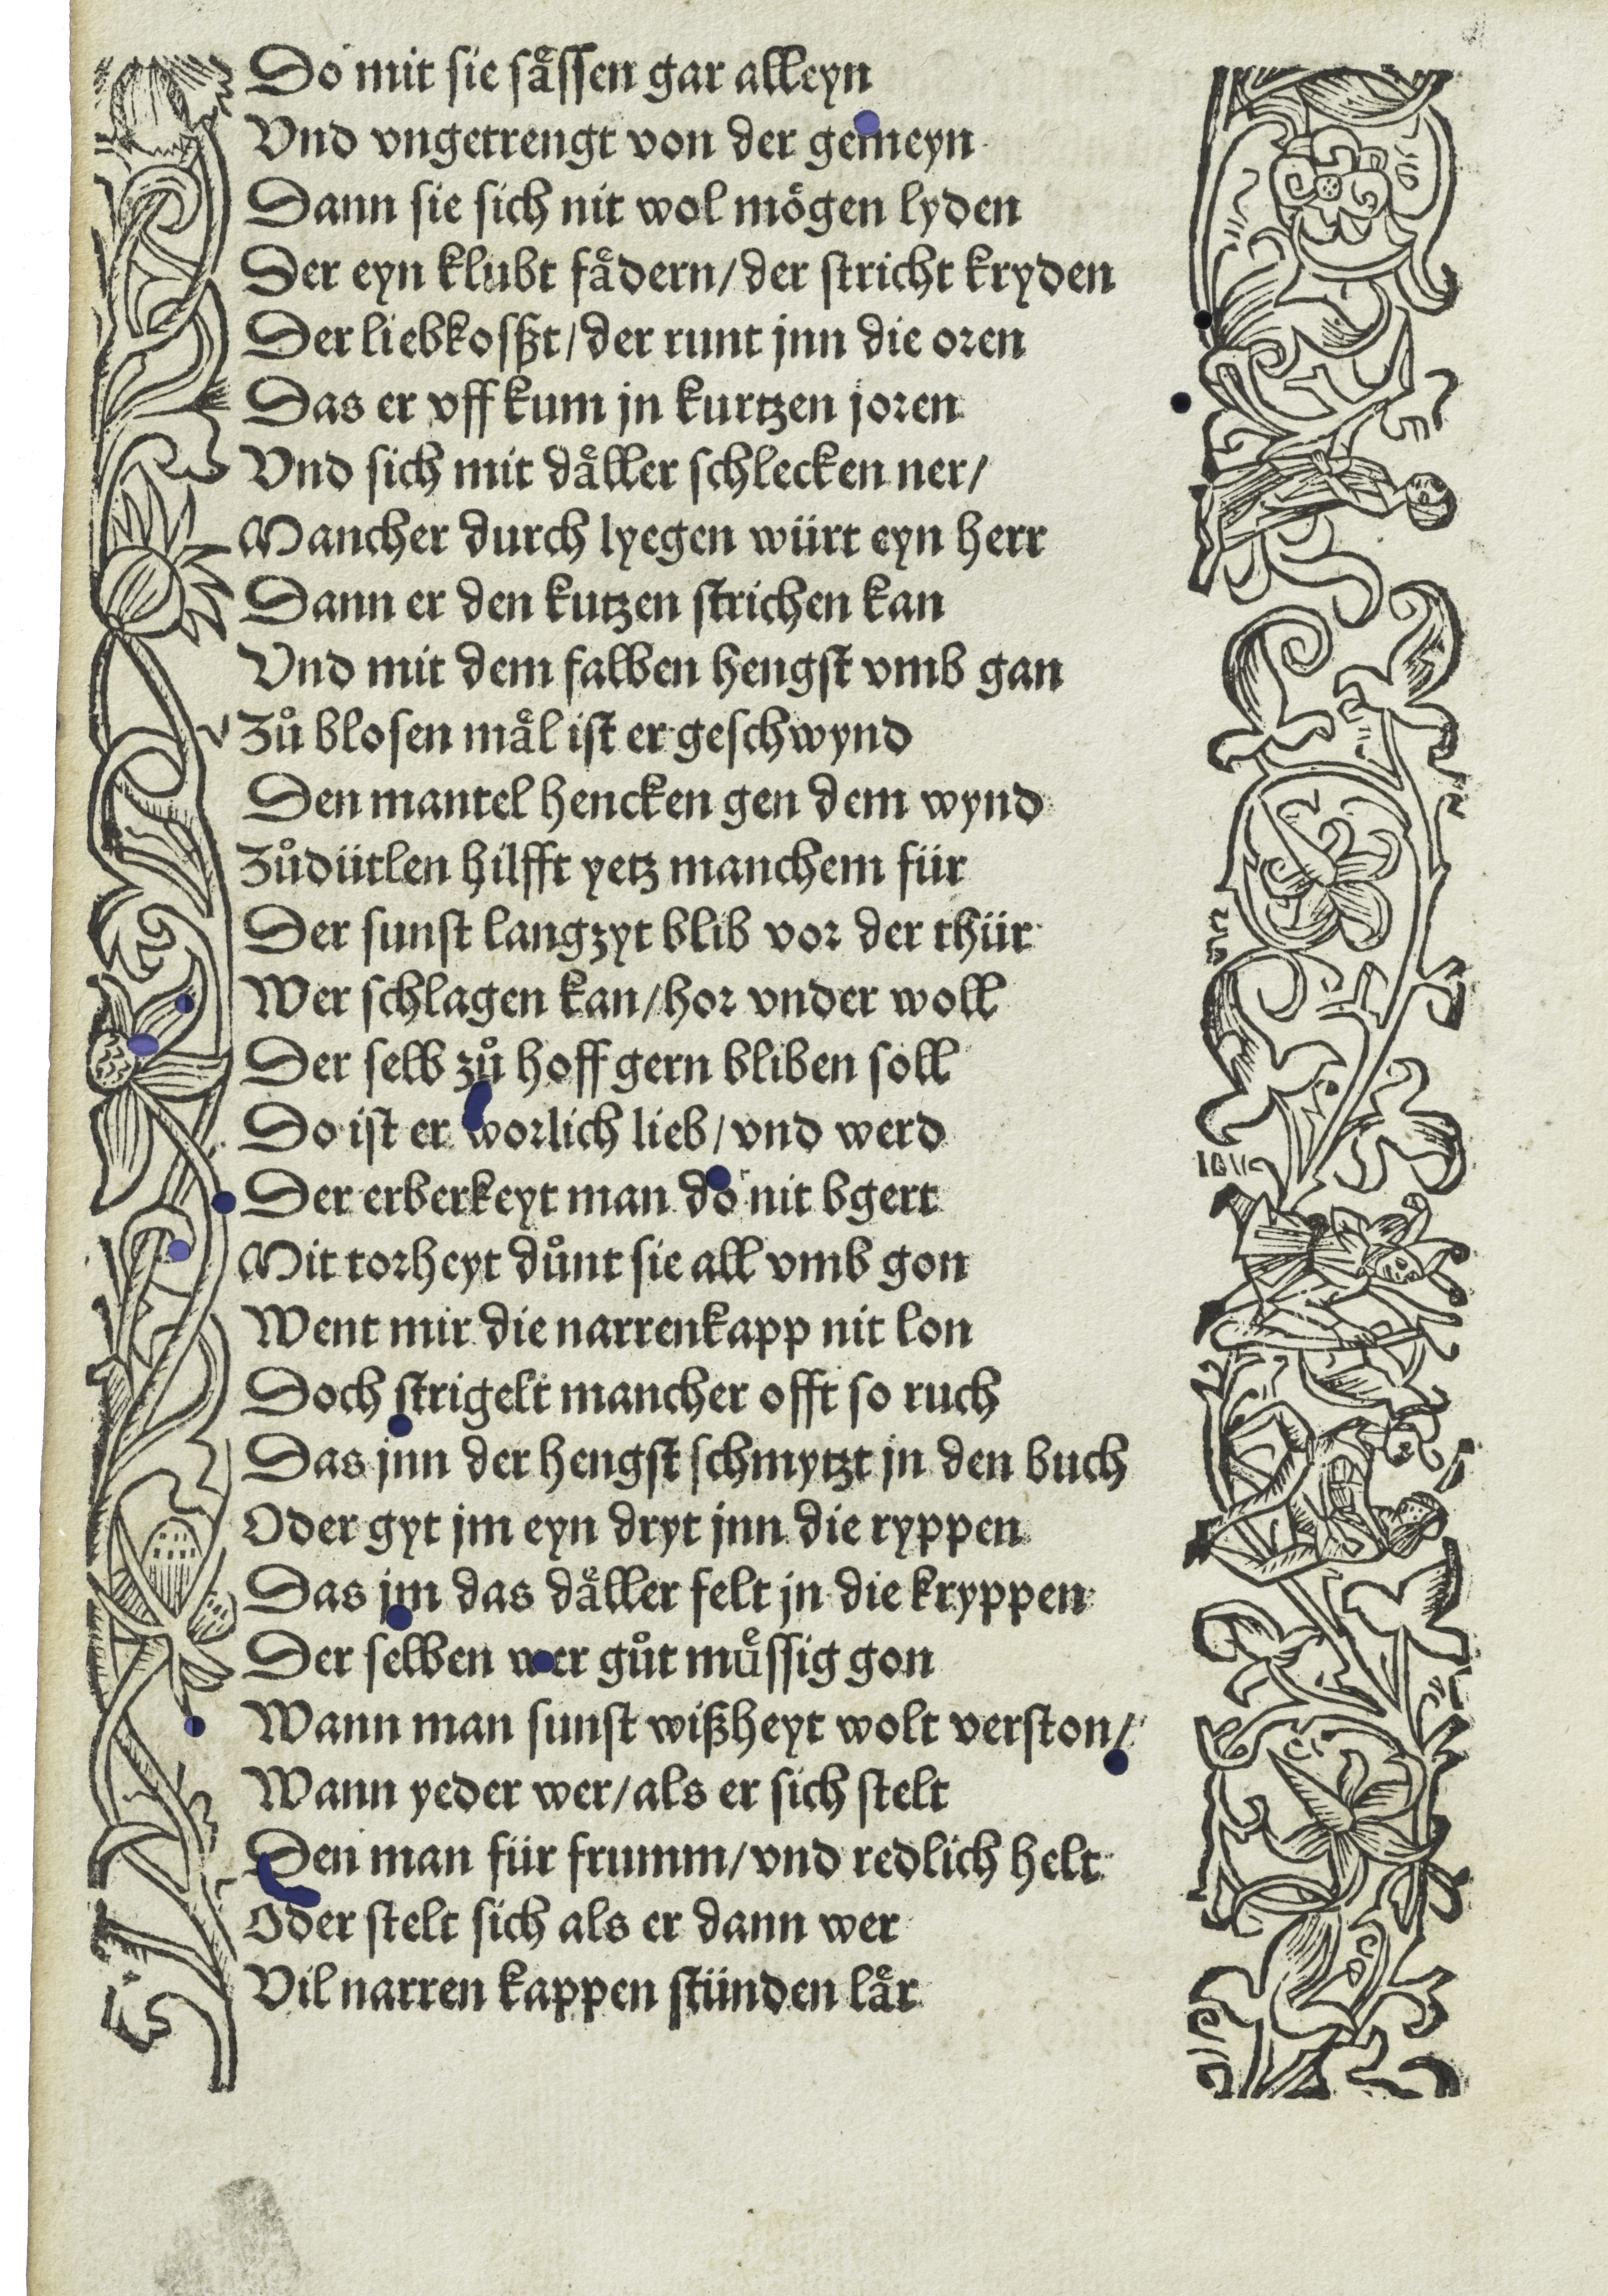 Do mit sie saͤſſen gar alleyn
Vnd vngetrengt von der gemeyn
Dann sie sich nit wol moͤgen lyden
Der eyn klubt faͤdern/der stricht kryden
Der liebkoſßt/der runt jnn die oren
Das er vff kum jn kurtzen joren
Vnd sich mit daͤller ſchlecken ner/
Mancher durch lyegen würt eyn herr
Dann er den kutzen ſtrichen kan
Vnd mit dem falben hengſt vmb gan
Zuͦ bloſen maͤl iſt er geſchwynd
Den mantel hencken gen dem wynd
Zuͦdütlen hilfft yetz manchem für
Der ſunſt langzyt blib vor der thür
Wer ſchlagen kan/hor vnder woll
Der ſelb zuͦ hoff gern bliben ſoll
Do iſt er worlich lieb/vnd werd
Der erberkeyt man do nit bgert
Mit torheyt duͦnt sie all vmb gon
Went mir die narrenkapp nit lon
Doch ſtrigelt mancher offt ſo ruch
Das jnn der hengſt ſchmytzt jn den buch
Oder gyt jm eyn dryt jnn die ryppen
Das jm das daͤller felt jn die kryppen
Der ſelben wer guͦt muͤſſig gon
Wann man ſunſt wißheyt wolt verſton/
Wann yeder wer/als er sich ſtelt
Den man für frumm/vnd redlich helt
Oder ſtelt sich als er dann wer
Vil narren kappen ſtünden laͤr